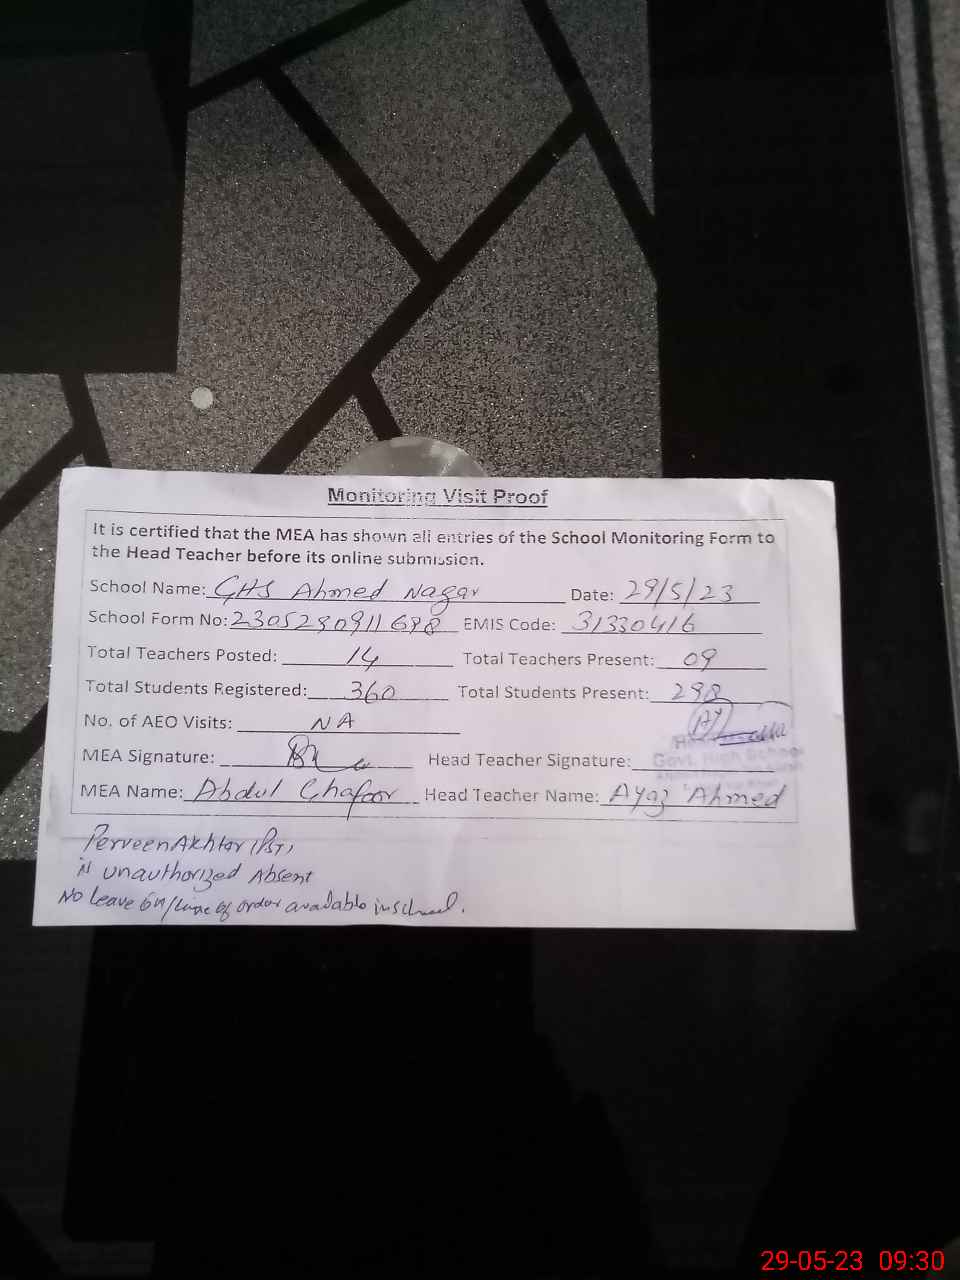 Monitoring Visit Proof
It is certified that the MEA has shown all entries of the School Monitoring Form to
the Head Teacher before its online submission.
School Name: GHS Ahmed Nagar Date: 29/5/23
School Form No: EMIS Code: 31330416
Total Teachers Posted: 14 Total Teachers Present: 09
Total Students Registered: 360 Total Students Present: 298
No. of AEO Visits: NA
MEA Signature: Head Teacher Signature:
Govt. High School
MEA Name: Abdul Ghafoor Head Teacher Name: Ayaz Ahmed
Perveen Akhtar (PST)
is unauthorized Absent
No leave on/ of order available in school.
29-05-23 09:30